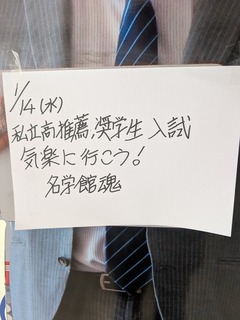 1/14(水)
私立高推薦,奨学生入試
気楽に行こう!
名学館魂